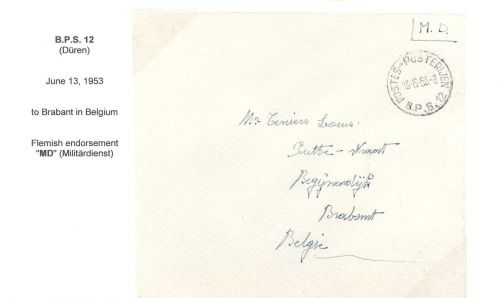 B.P.S. 12
(Düren)
June 13, 1953
to Brabant in Belgium
Flemish endorsement
"MD" (Militärdienst)
M. D.
POSTES-POSTERIJEN
B.P.S. 12
Mr Teniers Louis.
Putte-straat
Begijnendijk
Brabant
Belgie